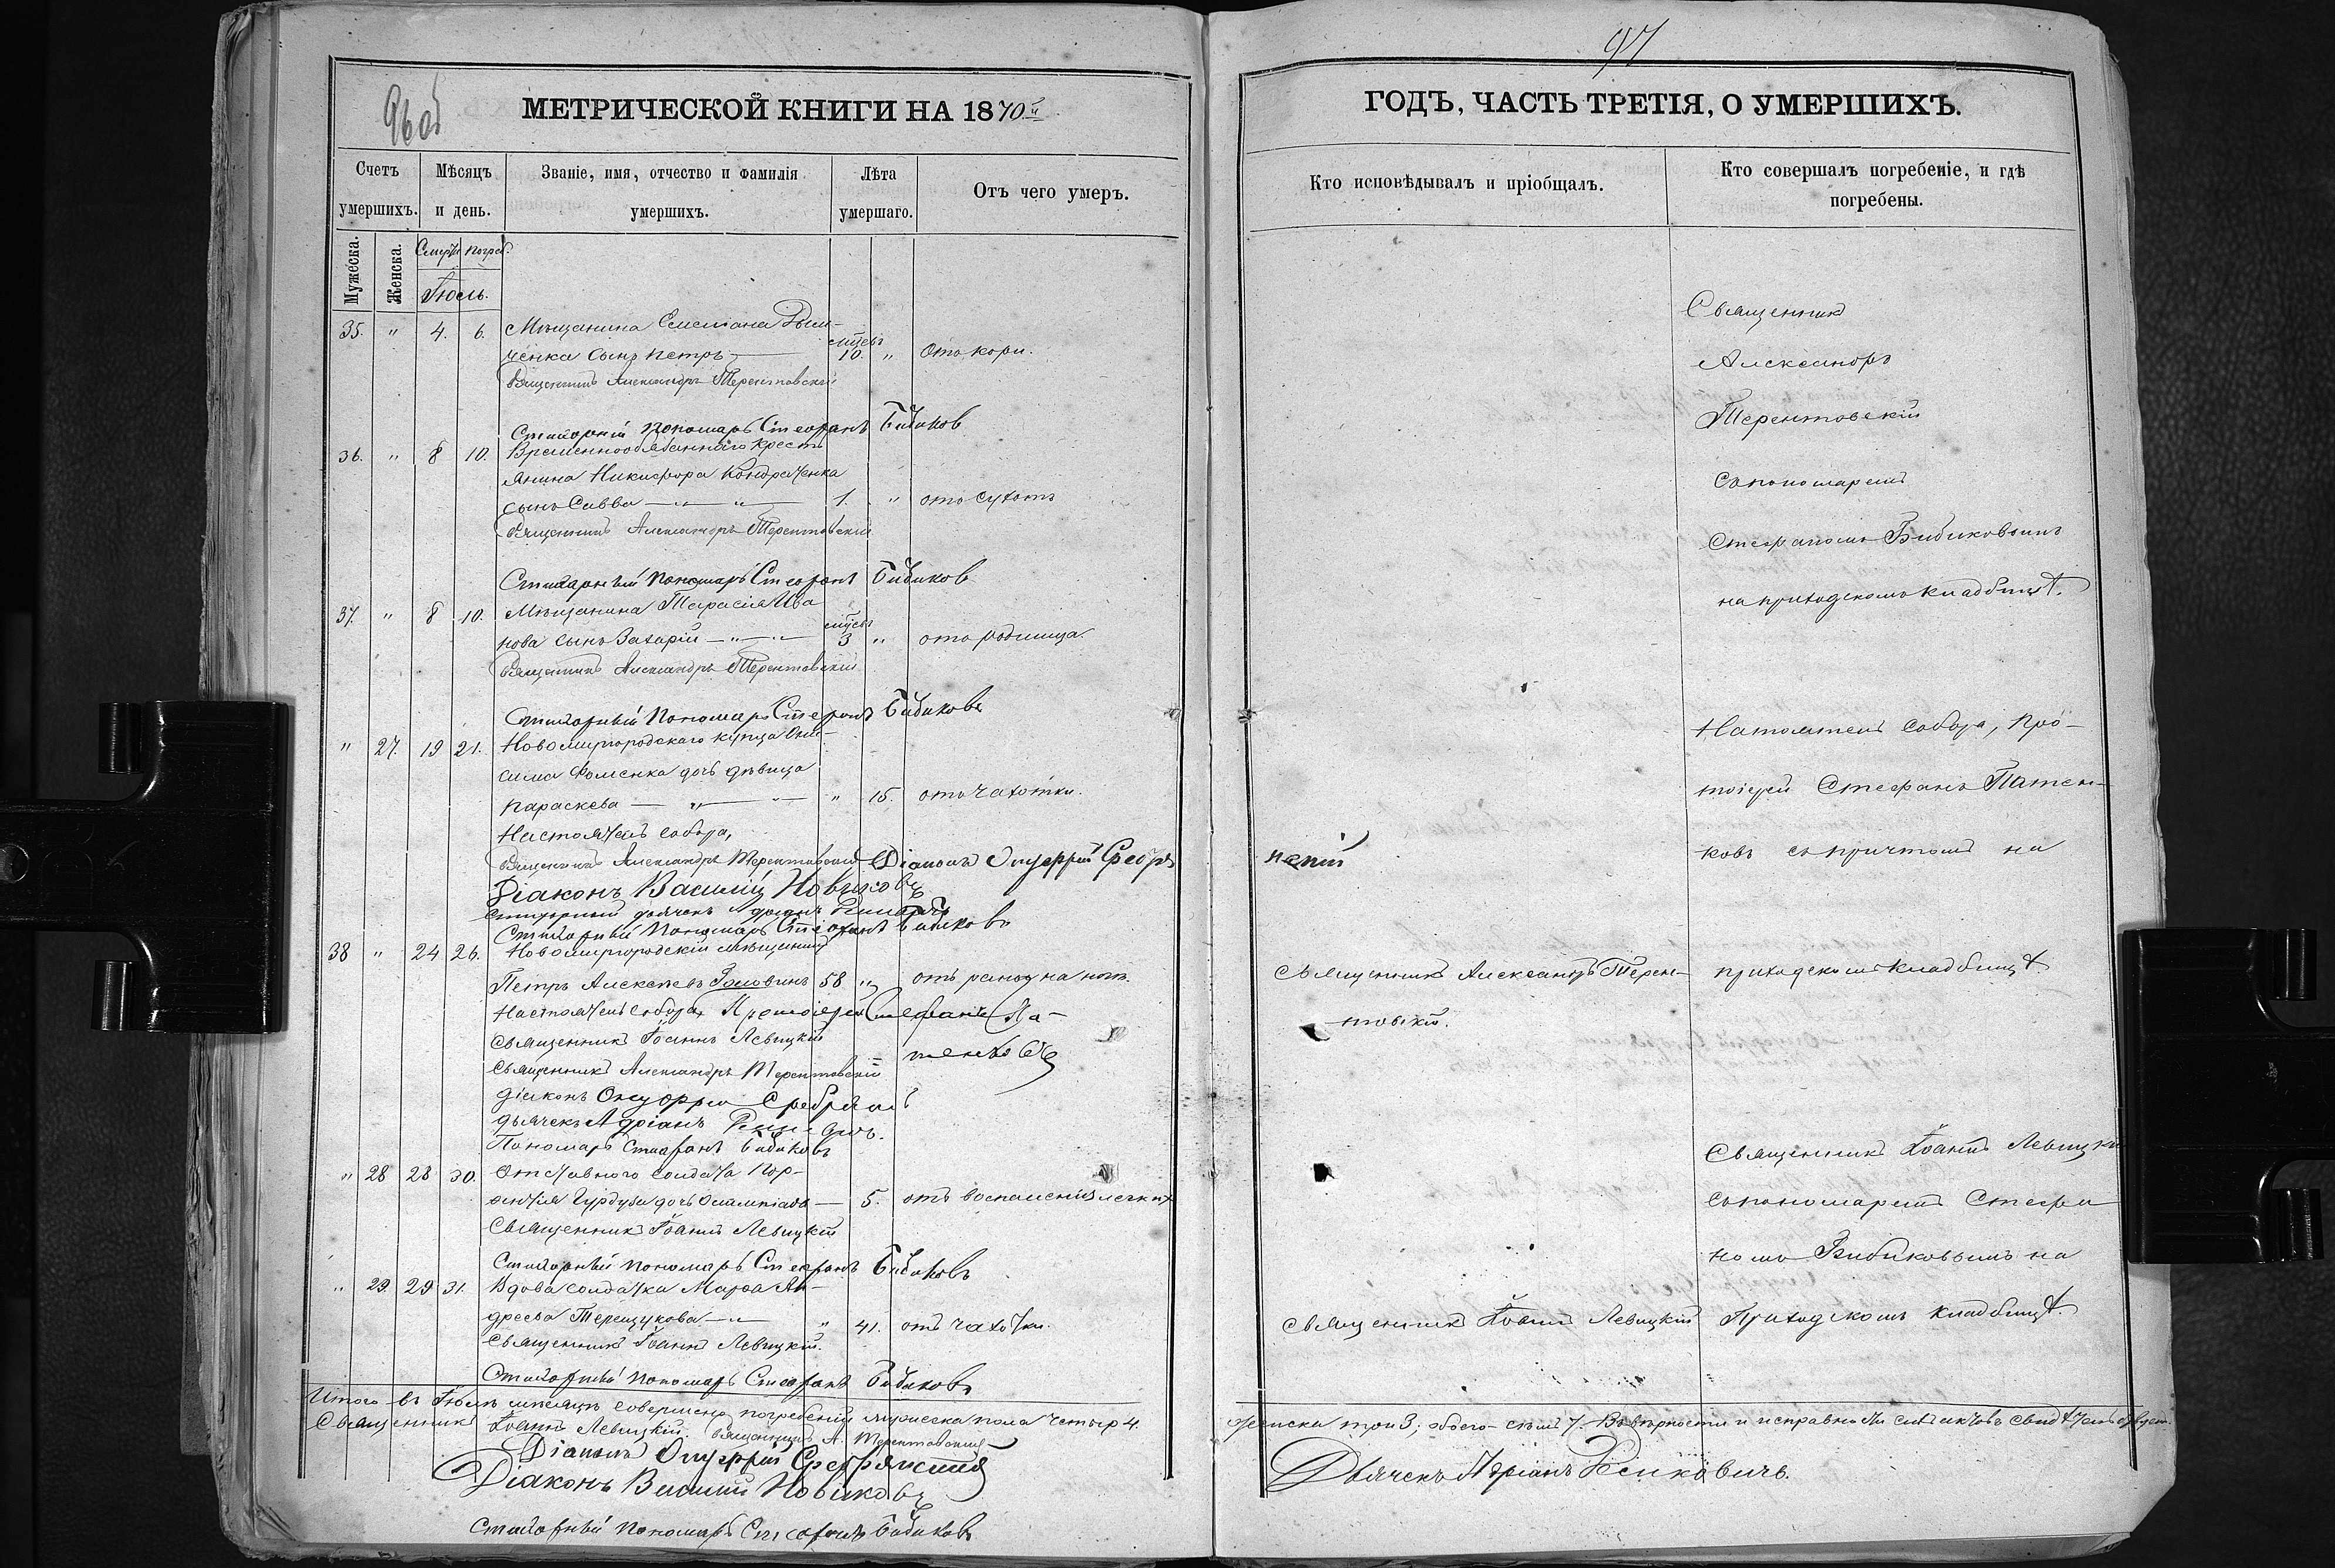 96об
МЕТРИЧЕСКОЙ КНИГИ НА 1870й
Счетъ умершихъ.
Мѣсяцъ и день.
Званіе, имя, отчество и фамилія умершихъ.
Лѣта умершаго.
Отъ чего умеръ.
Мужеска.
Женска.
Смерти погреб.
Іюль.
35. " 4. 6. Мѣщанина
ченка сынъ Петръ — мѣсяц. 10. " отъ кори.
Священникъ Александръ Терентовскій
Стихарный пономарь Стефанъ Бибиков
36. " 8 10. Временнообязаннаго крестъ
янина Никифора Кондраченка
сынъ Савва — " — " — 1. " отъ сухотъ
Священникъ Александръ Терентовскій
Стихарный пономарь Стефанъ Бибиков
37. " 8 10. Мѣщанина Тарасія Ива
нова сынъ Захарій — " — " — мѣсяц. 3 " отъ родимца.
Священникъ Александръ Терентовскій
Стихарный Пономарь Стефанъ Бибиковъ
" 27. 19 21. Новомиргородскаго купца Они-
сима Фоменка дочь дѣвица
Параскева — " — " — " 15. отъ чахотки.
Настоятель собора,
Священникъ Александръ Терентовскій Діаконъ Онуфрій Сребрян
Діаконъ Василій Новиковъ
Стихарный дьячекъ Адріанъ
Стихарный Пономарь Стефанъ Бибиковъ
38 " 24 26. Новомиргородскій мѣщанинъ
Петръ Алексѣевъ Головинъ 58 " отъ раны на ногѣ.
Настоятель собора, Протоіерей Стефанъ Па-
тенковъ
Священникъ Іоаннъ Левицкій
Священникъ Александръ Терентовскій
Діаконъ Онуфрій
дьячекъ Адріанъ
Пономарь Стефанъ Бибиковъ
" 28 28 30. Отставного солдата Пор-
фирія дочь Олимпіада — 5. отъ воспаленія легкихъ
Священникъ Іоаннъ Левицкій
Стихарный пономарь Стефанъ Бибиковъ
" 29. 29 31. Вдова солдатка Марѳа Ан-
дреева Терещукова — " — " 41. отъ чахотки.
Священникъ Іоаннъ Левицкій.
Стихарный пономарь Стефанъ Бибиковъ
Итого въ Іюлѣ мѣсяцѣ совершено погребеній мужеска пола четыре 4.
Священникъ Іоаннъ Левицкій. Священникъ А. Терентовскій
Діаконъ Онуфрій
Діаконъ Василій Новиковъ
Стихарный пономарь Стефанъ Бибиковъ
97
ГОДЪ, ЧАСТЬ ТРЕТІЯ, О УМЕРШИХЪ.
Кто исповѣдывалъ и пріобщалъ.
Кто совершалъ погребеніе, и гдѣ погребены.
Священникъ
Александръ
Терентовскій
съ пономаремъ
Стефаномъ Бибиковымъ
на приходскомъ кладбищѣ.
Настоятель собора, Про-
тоіерей Стефанъ Патен-
скій
ковъ съ причтомъ на
Священникъ Александръ Терен-
товскій.
приходскомъ кладбищѣ.
Священникъ Іоаннъ Левицкій
съ пономаремъ Стефа
номъ Бибиковымъ на
Священникъ Іоаннъ Левицкій
Приходскомъ кладбищѣ.
женска три 3; обоего семь 7. Въ вѣрности и исправности сихъ актовъ
Дьячекъ Адріанъ